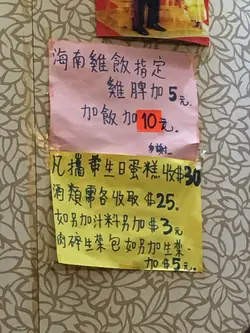 海南雞飯指定
雞脾加5元.
加飯加10元.
多謝
凡攜帶生日蛋糕收$30
酒類需各收取$25.
如另加汁料另加$3元
肉碎生菜包如另加生菜
加$5元.